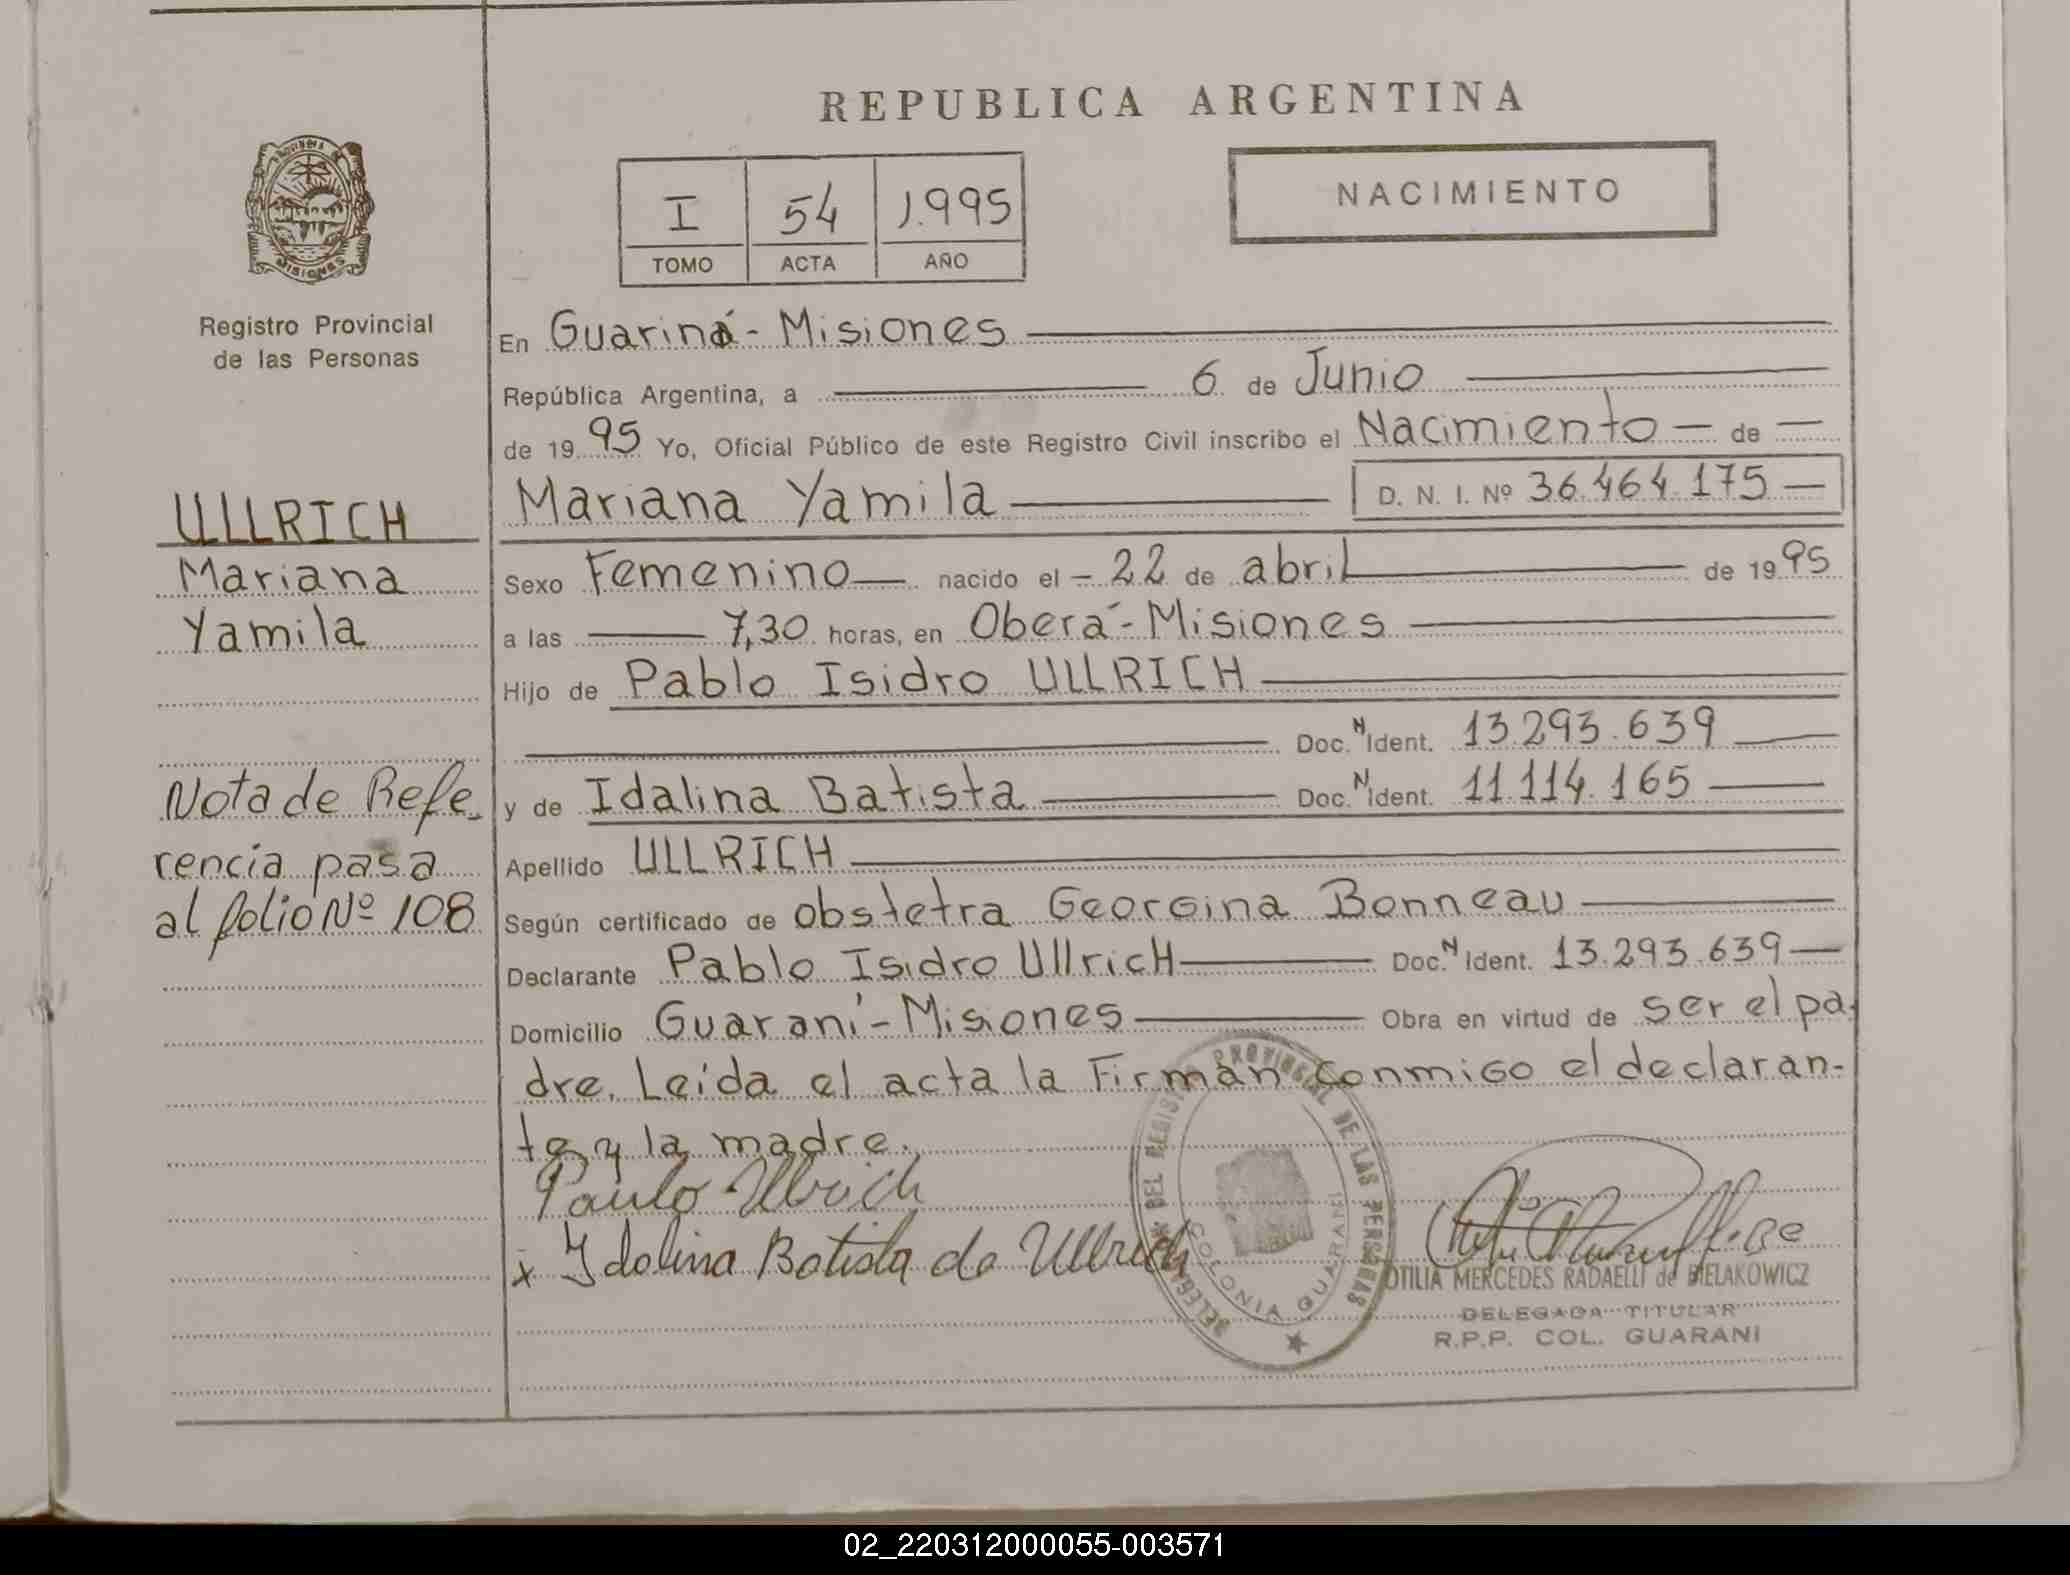 REPUBLICA ARGENTINA
PROVINCIA DE
MISIONES
Registro Provincial
de las Personas
I 54 1.995
TOMO ACTA AÑO
NACIMIENTO
ULLRICH
Mariana
Yamila
Nota de Refe-
rencia pasa
al folio Nº 108
En Guariná - Misiones
República Argentina, a 6 de Junio
de 1995 Yo, Oficial Público de este Registro Civil inscribo el Nacimiento - de -
Mariana Yamila D. N. I. Nº 36.464.175
Sexo Femenino nacido el - 22 de abril de 1995
a las 7,30 horas, en Oberá - Misiones
Hijo de Pablo Isidro ULLRICH
Doc. N Ident. 13.293.639
y de Idalina Batista Doc. N Ident. 11.114.165
Apellido ULLRICH
Según certificado de obstetra Georgina Bonneau
Declarante Pablo Isidro UllricH Doc. N Ident. 13.293.639
Domicilio Guaraní - Misiones Obra en virtud de ser el pa-
dre. Leída el acta la Firman conmigo el declaran-
te y la madre.
Paulo Ullrich
x Idalina Batista de Ullrich
DELEGACION DEL REGISTRO PROVINCIAL DE LAS PERSONAS
COLONIA GUARANI
OTILIA MERCEDES RADAELLI de BIELAKOWICZ
DELEGADA TITULAR
R.P.P. COL. GUARANI
02_220312000055-003571